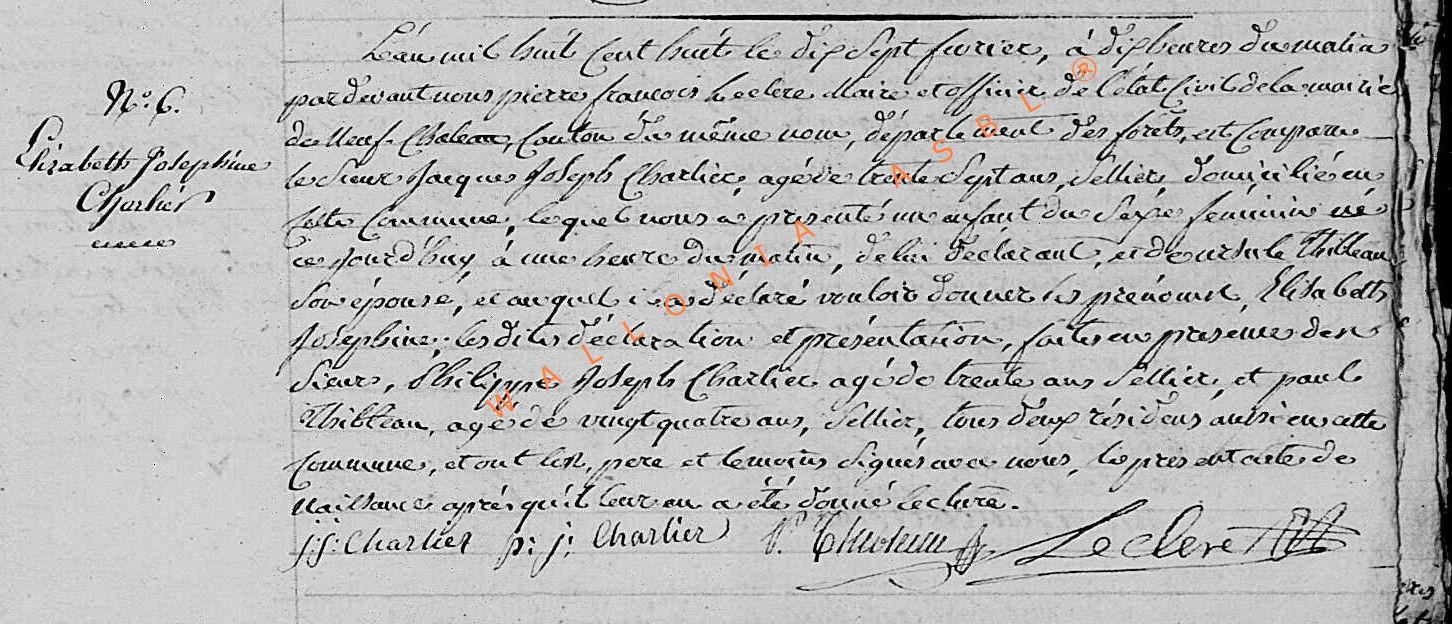 L'an mil huit cent huit le dix sept fevrier, à dix heures du matin
N.o 6.
pardevant nous pierre françois Leclere Maire et officier de l'état Civil de la mairie
de Neuf-Chateau, Canton du même nom, département des forêts, est Comparu
Elisabeth Josephine
le Sieur Jacques Joseph Charlier, agé de trente Sept ans, Sellier, domicilié en
Charlier
cette Commune, lequel nous a presenté un enfant du Sexe feminin né
ce jourd'huy, à une heure du matin, de lui déclarant, et de ursule Thibleau
Son épouse, et auquel il a déclaré vouloir donner les prénoms Elisabeth
Joséphine, les dites déclaration et présentation, faites en presence des
Sieurs, Philippe Joseph Charlier agé de trente ans Sellier, et paul
Thibleau, agé de vingt quatre ans, Sellier, tous deux résidens aussi en cette
Commune, et ont les, pere et temoins Signés avec nous, le présent acte de
Naissance après qu'il leur en a été donné lecture.
j: j: Charlier p: j: Charlier P. Leclere
WALLONIA ASBL ®